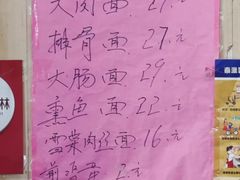 大肉面 27.元
排骨面 27.元
大肠面 29.元
熏鱼面 22.元
雪菜肉丝面 16.元
煎鸡蛋 2.元
林